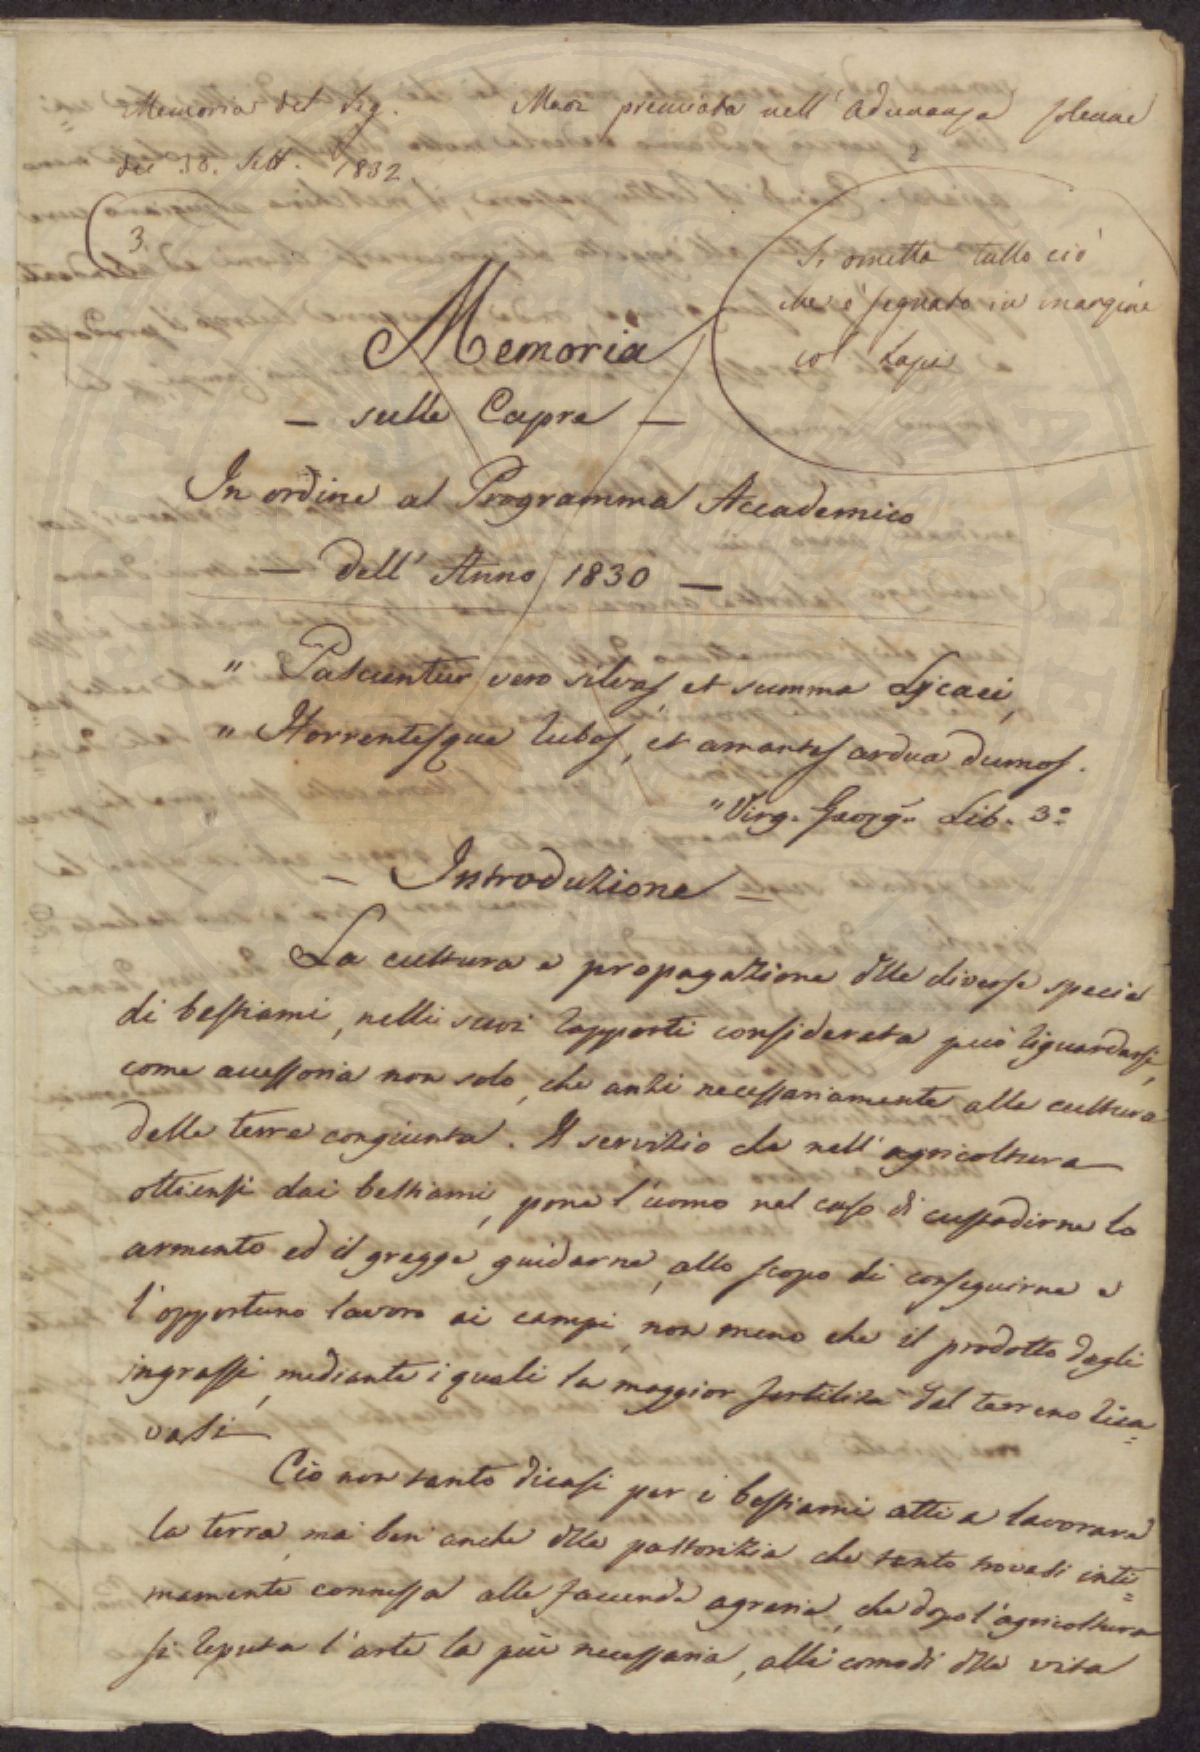 Memoria del Sig. Maoz premiata nell'Adunanza solenne
dei 30. Sett. 1832.
3.
Si ometta tutto ciò
che è segnato in margine
col lapis
Memoria
— sulle Capre —
In ordine al Programma Accademico
— dell'Anno 1830 —
" Pascuntur vero silvas, et summa Lycaei,
" Horrentesque rubos, et amantes ardua dumos.
"Virg. Georg. Lib. 3°
— Introduzione —
La cultura e propagazione dlle diverse specie
di bestiami, nelli suoi rapporti considerata può riguardarsi,
come accessoria non solo, che anzi necessariamente alla cultura
delle terre congiunta. Il servizio che nell'agricoltura
ottiensi dai bestiami, pone l'uomo nel caso di custodirne lo
armento ed il gregge guidarne, allo scopo di conseguirne e
l'opportuno lavoro ai campi, non meno che il prodotto degli
ingrassi, mediante i quali la maggior fertilità dal terreno rica=
vasi
Ciò non tanto dicasi per i bestiami atti a lavorare
la terra, mà ben anche dlla pastorizia che tanto trovasi inti=
mamente connessa alle faccende agrarie, che dopo l'agricoltura
si reputa l'arte la più necessaria, alli comodi dlla vita